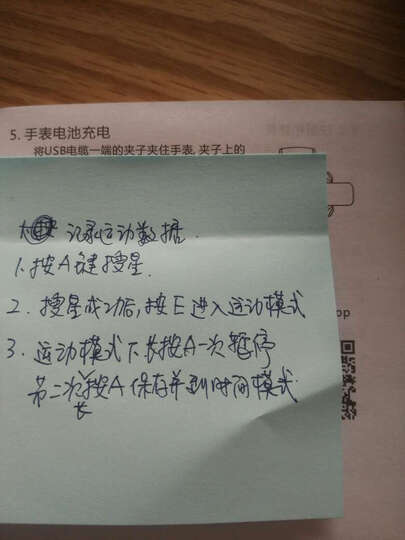 5. 手表电池充电
将USB电缆一端的夹子夹住手表,夹子上的
记录运动数据.
1. 按A键搜星.
2. 搜星成功后,按E进入运动模式
3. 运动模式下长按A一次暂停
第二次长按A保存并到时间模式.
pp